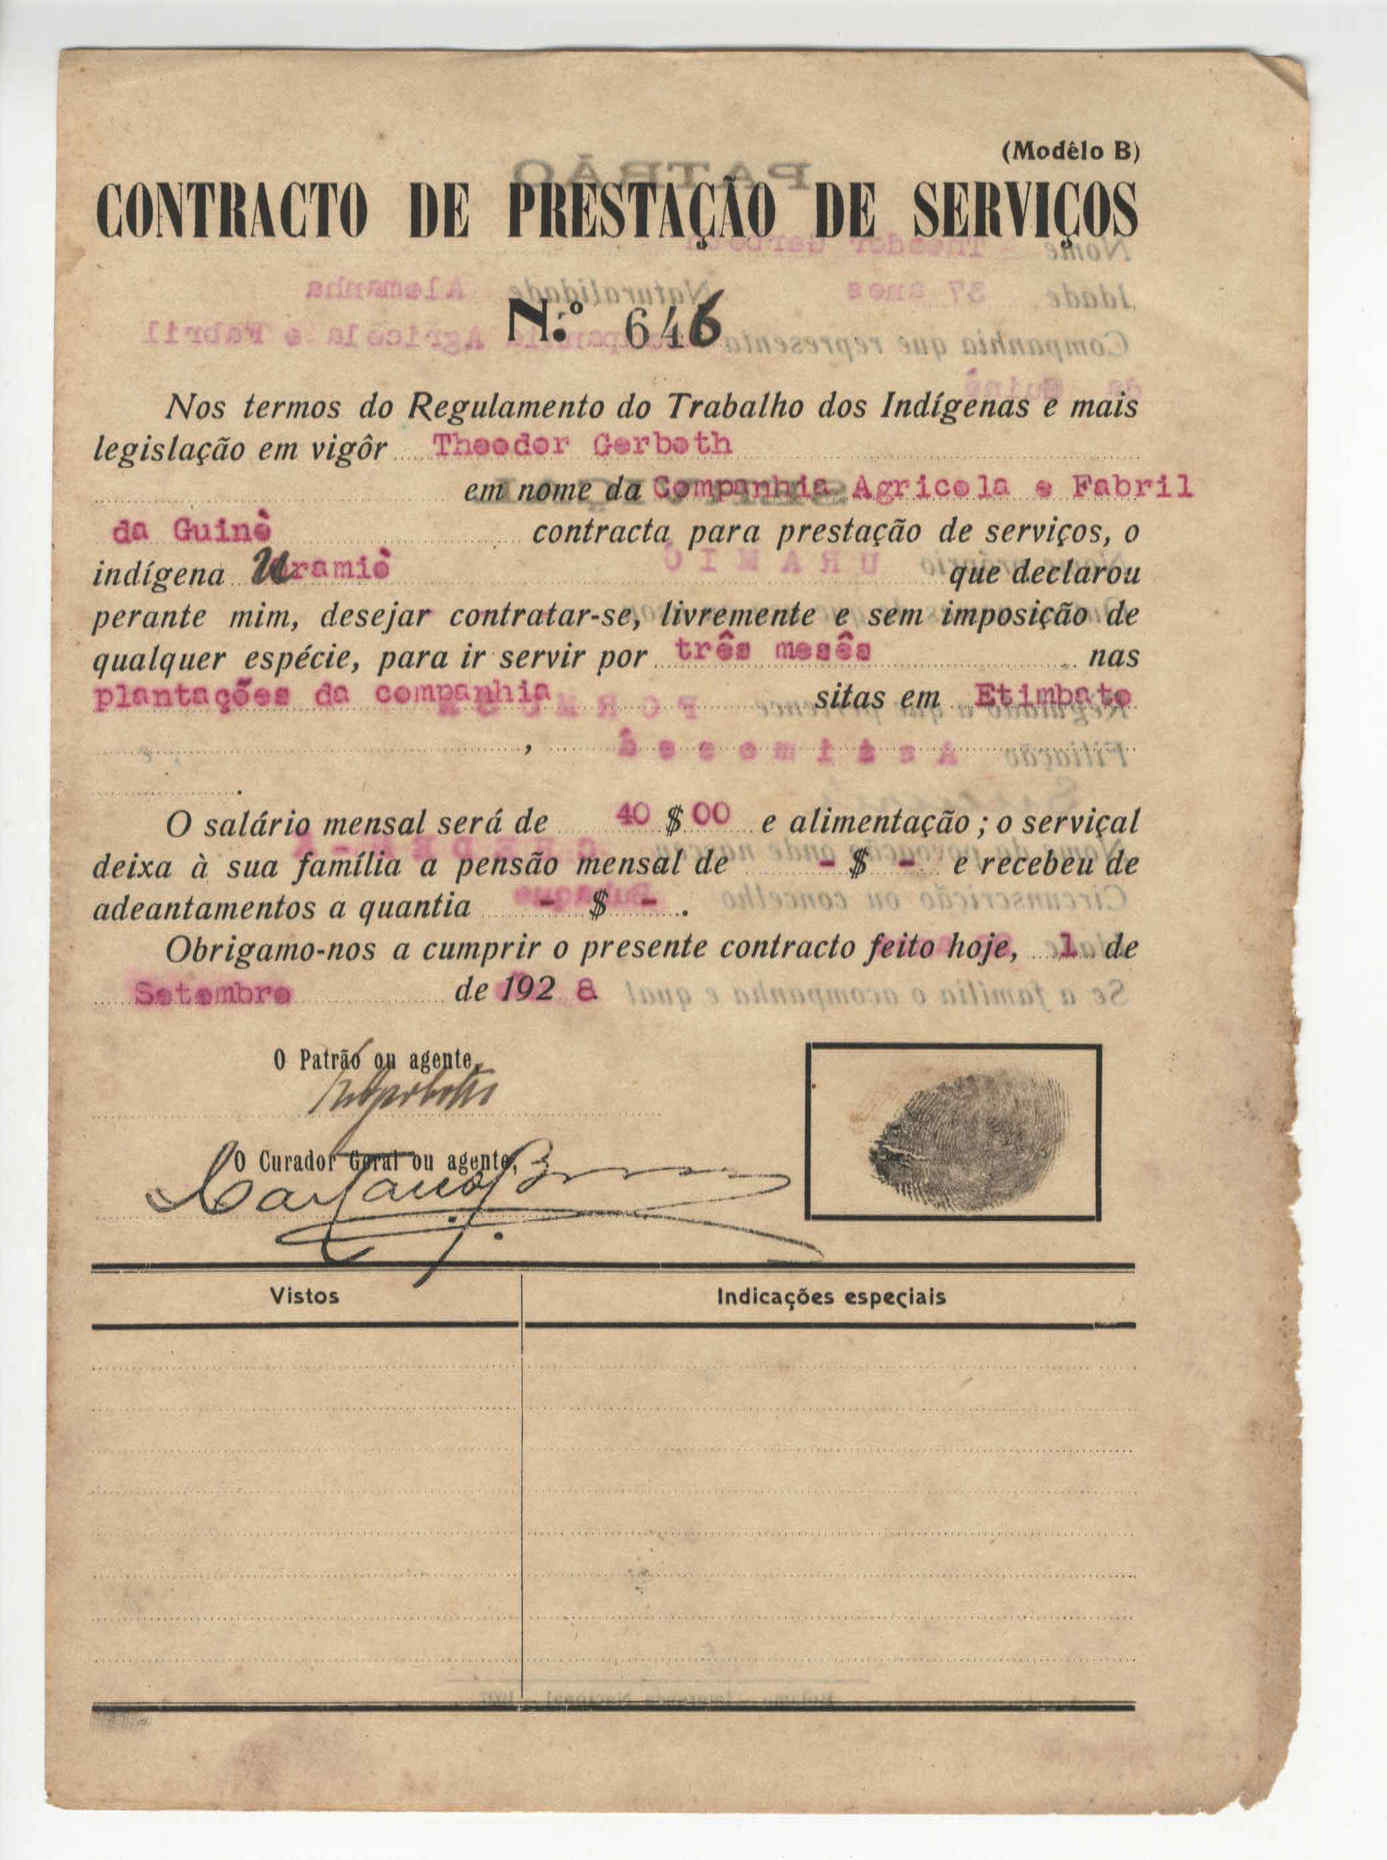 (Modêlo B)
CONTRACTO DE PRESTAÇÃO DE SERVIÇOS
N.º 646
Nos termos do Regulamento do Trabalho dos Indígenas e mais
legislação em vigôr Theodor Gerboth
em nome da Companhia Agricola e Fabril
da Guinè contracta para prestação de serviços, o
indígena Uramiè que declarou
perante mim, desejar contratar-se, livremente e sem imposição de
qualquer espécie, para ir servir por três mesês nas
plantações da companhia sitas em Etimbato
,
.
O salário mensal será de 40 $ 00 e alimentação; o serviçal
deixa à sua família a pensão mensal de - $ - e recebeu de
adeantamentos a quantia - $ - .
Obrigamo-nos a cumprir o presente contracto feito hoje, 1 de
Setembro de 192 8
O Patrão ou agente,
O Curador Geral ou agente,
Vistos
Indicações especiais